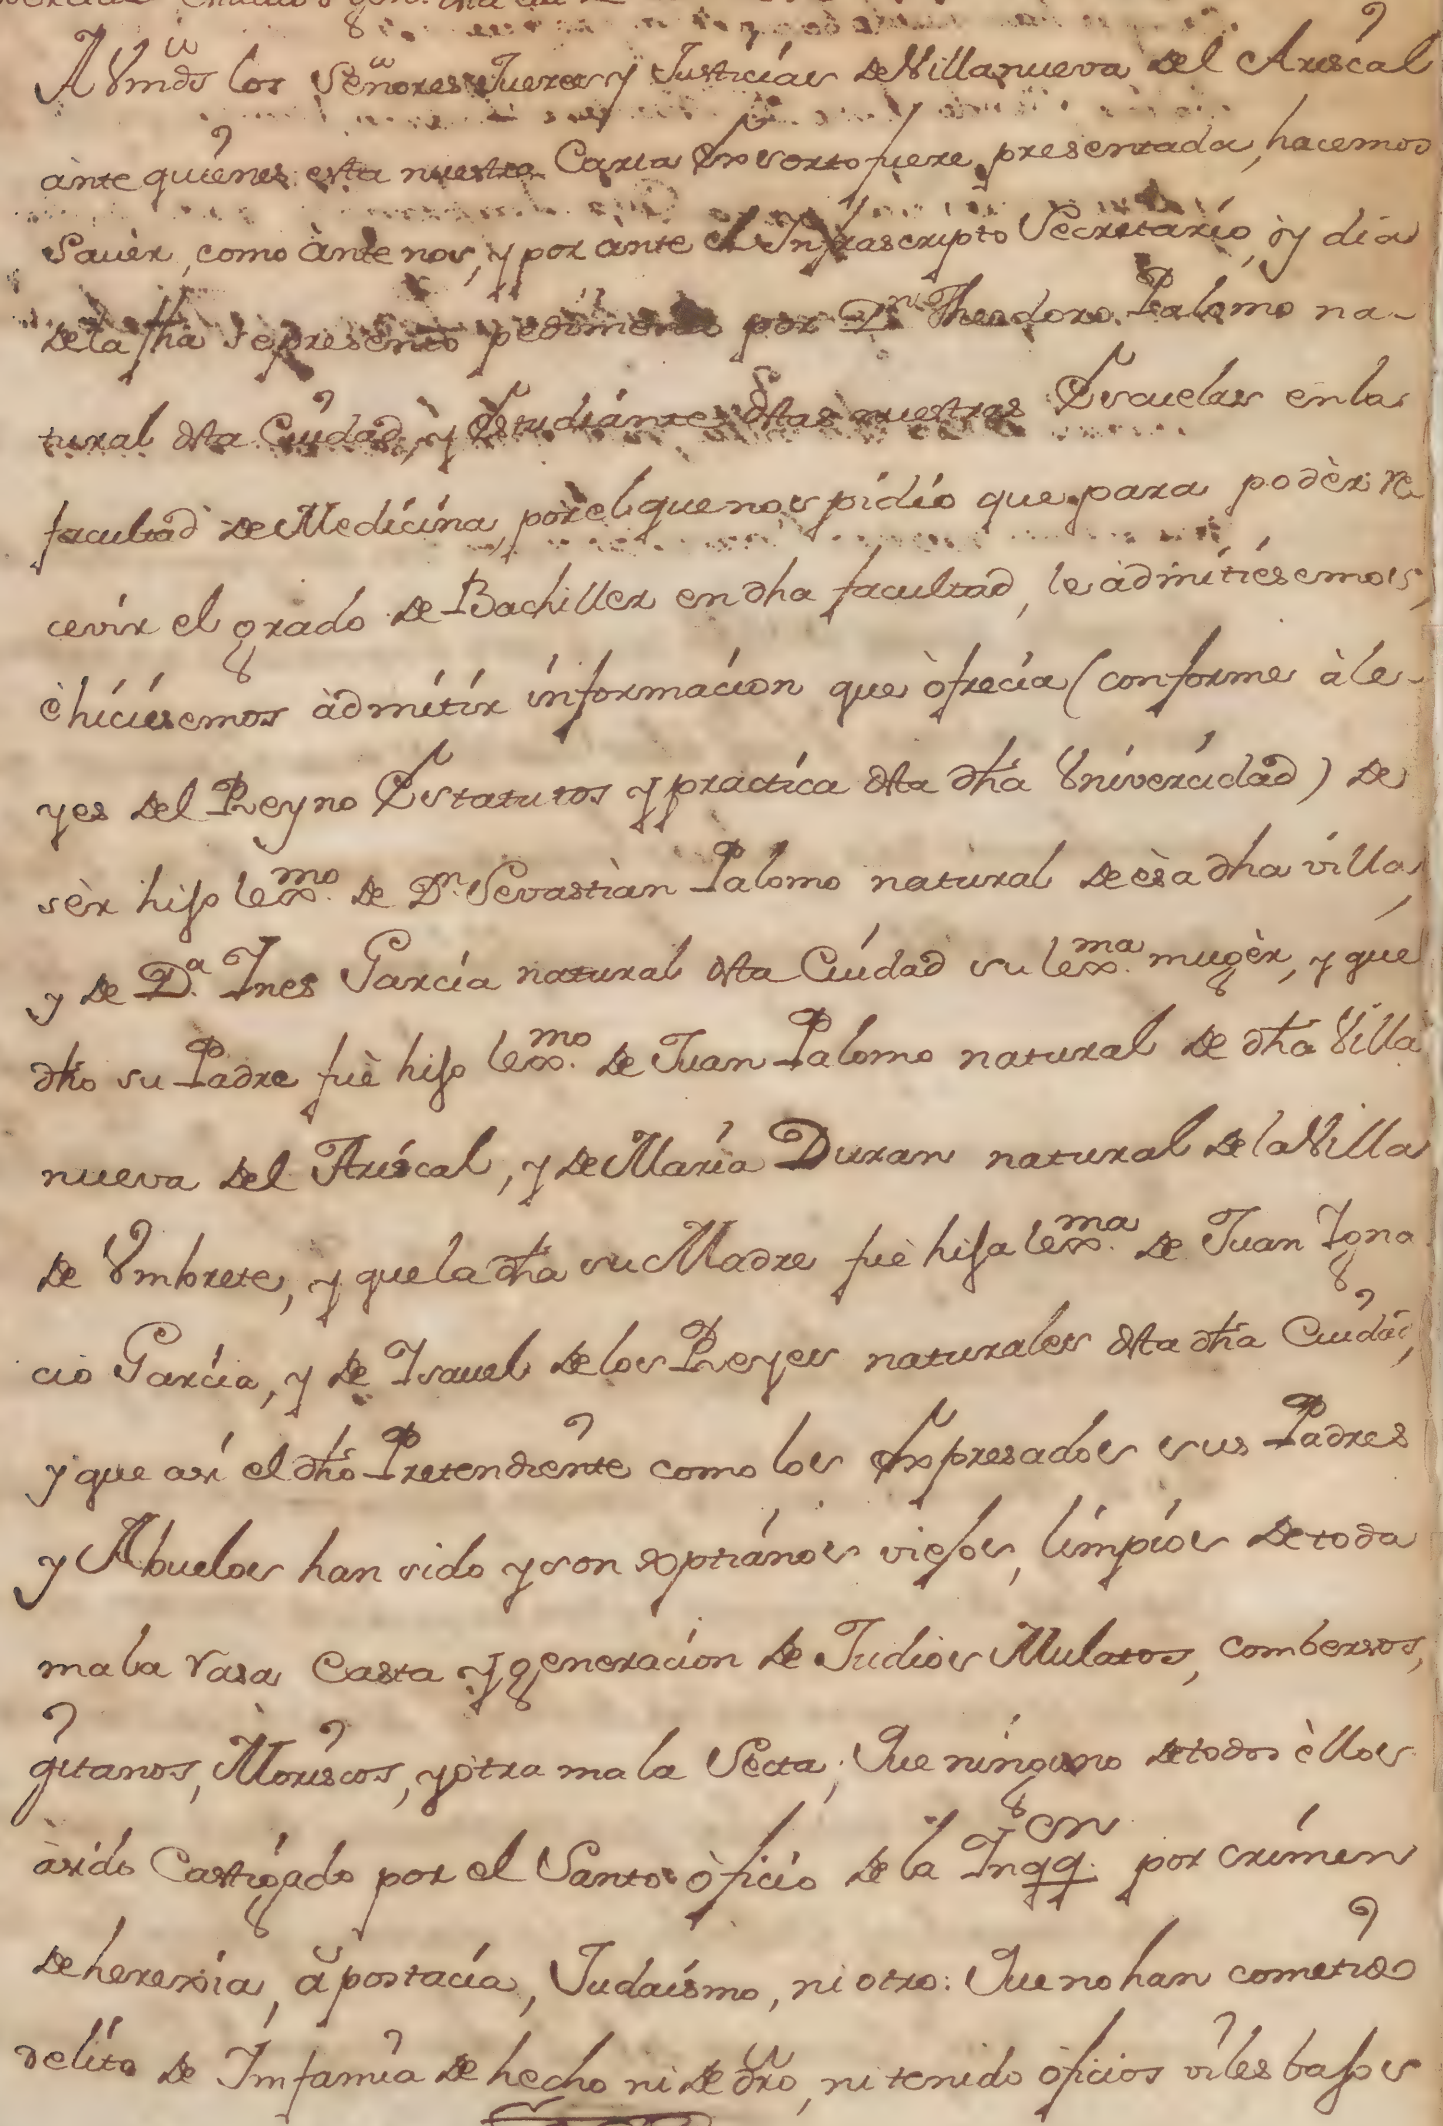 A Vmds los Señores Jueces y Justicias de Villanueva del Ariscal
ànte quienes esta nuestra Carta Exsorto fuere presentada, hacemos
Savèr, como ànte nos, y por ànte el Infrascripto Secretario, òy dia
de la fha se presentò pedimento por Dn Theodoro Palomo na-
tural dsta Ciudad, y Estudiante dstas nuestras Escuelas en la
facultad de Medicina, por el que nos pidio que para podèr re
cevir el grado de Bachiller en dha facultad, le àdmitiesemos,
è hiciesemos àdmitir informacion que òfrecia (conforme à le-
yes del Reyno Estatutos y practica dsta dha Vnivercidad) de
sèr hijo lexmo. de Dn. Sevastiàn Palomo natural de èsa dha villa,
y de Da. Ines Garcia natural dsta Ciudad su lexma. mugèr, y que
dho su Padre fuè hijo lexmo. de Juan Palomo natural de dha Villa
nueva del Ariscal, y de Maria Duran natural de la Villa
de Vmbrete, y que la dha su Madre fuè hija lexma. de Juan Igna
cio Garcia, y de Isavel de los Reyes naturales dsta dha Ciudad,
y que asi el dho Pretendiente como los Expresados sus Padres
y Abuelos han sido y son xptianos viejos, limpios de toda
mala rasa Casta y generacion de Judios Mulatos, combersos,
gitanos, Moriscos, y òtra mala Secta; Que ninguno de todos èllos
à sido Castigado por el Santo òficio de la Inqqon. por crimen
de herexia, àpostacia, Judaismo, ni otro: Que no han cometido
delito de Imfamia de hecho ni de dro, ni tenido òficios viles bajos